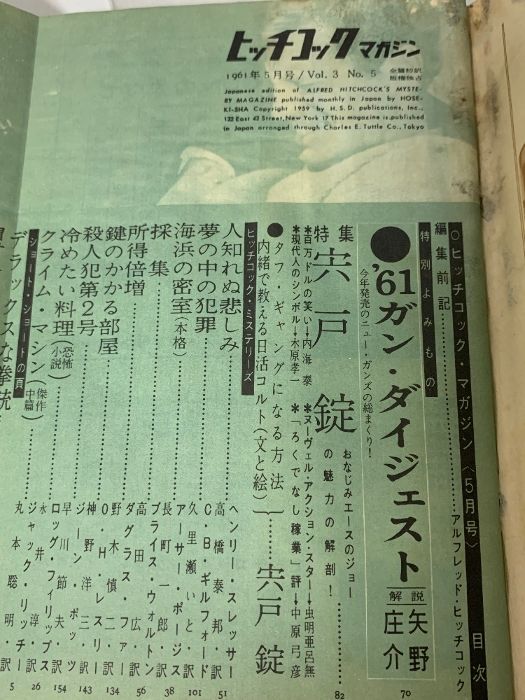 ヒッチコックマガジン
1961年5月号/Vol. 3 No. 5 全篇初訳 版権独占
Japanese edition of ALFRED HITCHCOCK'S MYSTE-
RY MAGAZINE published monthly in Japan by HOSE-
KI-SHA Copyright 1959 by H. S. D. publications, Inc.,
122 East 42 Street, New York 17 This magazine is published
in Japan arranged through Charles E. Tuttle Co., Tokyo
○ヒッチコック・マガジン〈5月号〉 目次
編集前記 アルフレッド・ヒッチコック
特別よみもの
●'61ガン・ダイジェスト 解説 矢野庄介 70
今年発売のニュー・ガンズの総まくり!
特集 宍戸錠 おなじみエースのジョーの魅力の解剖! 82
＊百万ドルの笑→内海泰 ＊ヌーヴェル・アクション・スター→虫明亜呂無
＊現代人のシンボル→木原孝一 ＊「ろくでなし稼業」評→中原弓彦
●タフ・ギャングになる方法
内緒で教える日活コルト（文と絵） 宍戸錠
ヒッチコック・ミステリーズ
人知れぬ悲しみ ヘンリー・スレッサー 高橋泰邦・訳 51
夢の中の犯罪 C・B・ギルフォード 久里瀬いと・訳 101
海浜の密室（本格） アーサー・ポージス 長町一郎・訳 38
採集 ブライス・ウォルトン 高田広・訳 56
所得倍増 ダグラス・ファー
鍵のかかる部屋 野木慎二・訳 134
殺人犯第2号 神野洋三・訳 143
冷めたい料理（恐怖小説） ロック・フィリップス 早川節夫・訳 154
クライム・マシン（傑作中篇） ジャック・リッチー 水井淳・訳 26
ショート・ショートの頁
デラックスな拳銃 丸本聡明・訳 5